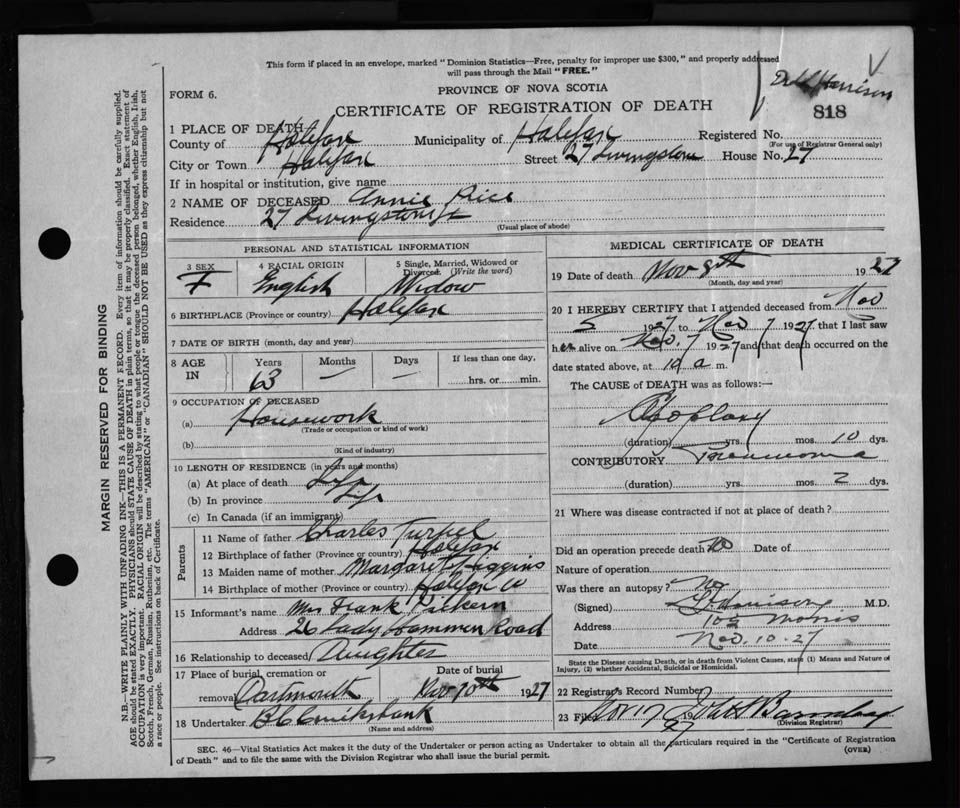 This form if placed in an envelope, marked "Dominion Statistics—Free, penalty for improper use $300," and properly addressed
will pass through the Mail "FREE."
Harrison
PROVINCE OF NOVA SCOTIA
FORM 6.
CERTIFICATE OF REGISTRATION OF DEATH
818
1 PLACE OF DEATH
County of Halifax Municipality of Halifax Registered No.
(For use of Registrar General only)
City or Town Halifax Street 27 Livingstone House No. 27
If in hospital or institution, give name
2 NAME OF DECEASED Annie Rice
Residence 27 Livingstone St
(Usual place of abode)
PERSONAL AND STATISTICAL INFORMATION
3 SEX 4 RACIAL ORIGIN 5 Single, Married, Widowed or
Divorced. (Write the word)
F English Widow
6 BIRTHPLACE (Province or country) Halifax
7 DATE OF BIRTH (month, day and year)
8 AGE IN Years Months Days If less than one day,
63 — — hrs. or min.
9 OCCUPATION OF DECEASED
(a) Housework
(Trade or occupation or kind of work)
(b)
(Kind of industry)
10 LENGTH OF RESIDENCE (in years and months)
(a) At place of death Life
(b) In province Life
(c) In Canada (if an immigrant)
Parents
11 Name of father Charles Turpel
12 Birthplace of father (Province or country) Halifax
13 Maiden name of mother Margaret Higgins
14 Birthplace of mother (Province or country) Halifax Co
15 Informant's name Mrs Frank
Address 26 Lady Hammond Road
16 Relationship to deceased Daughter
17 Place of burial, cremation or Date of burial
removal Dartmouth Nov 10th 1927
18 Undertaker Cruikshank
(Name and address)
MEDICAL CERTIFICATE OF DEATH
19 Date of death Nov 8th 1927
(Month, day and year)
20 I HEREBY CERTIFY that I attended deceased from Nov
5 1927 to Nov 7 1927 that I last saw
her alive on Nov. 7 1927 and that death occurred on the
date stated above, at 10 a m.
The CAUSE of DEATH was as follows:—
Apoplexy
(duration) yrs. mos. 10 dys.
CONTRIBUTORY Pneumonia
(duration) yrs. mos. 2 dys.
21 Where was disease contracted if not at place of death?
Did an operation precede death No Date of
Nature of operation
Was there an autopsy? No
(Signed) Harrison M.D.
109 Morris
Date Nov. 10-27
State the Disease causing Death, or in death from Violent Causes, state (1) Means and Nature of
Injury, (2) whether Accidental, Suicidal or Homicidal.
22 Registrar's Record Number
23 Filed Nov 27
(Division Registrar)
SEC. 46—Vital Statistics Act makes it the duty of the Undertaker or person acting as Undertaker to obtain all the particulars required in the "Certificate of Registration
of Death" and to file the same with the Division Registrar who shall issue the burial permit.
(OVER)
MARGIN RESERVED FOR BINDING
N.B.—WRITE PLAINLY WITH UNFADING INK—THIS IS A PERMANENT RECORD. Every item of information should be carefully supplied.
AGE should be stated EXACTLY. PHYSICIANS should STATE CAUSE OF DEATH in plain terms, so that it may be properly classified. Exact statement of
OCCUPATION is very important. RACIAL ORIGIN will be described by stating to what people or tongue the deceased person belonged, whether English, Irish,
Scotch, French, German, Russian, Ruthenian, etc. The terms "AMERICAN" or "CANADIAN" SHOULD NOT BE USED as they express citizenship but not
a race or people. See instructions on back of Certificate.